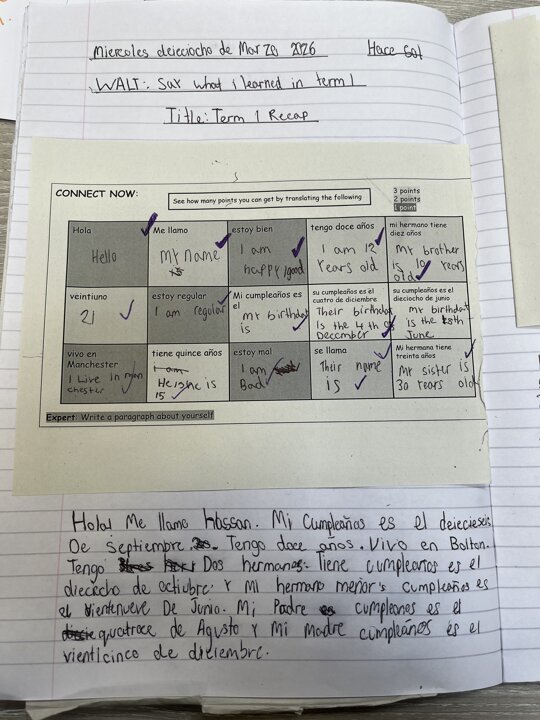 Miercoles deieciocho de Marzo 2026 Hace Sol
WALT: Say what i learned in term 1
Title: Term 1 Recap
CONNECT NOW:
See how many points you can get by translating the following
3 points
2 points
1 point
Hola
Hello
Me llamo
My name is
estoy bien
I am happy/good
tengo doce años
I am 12 years old
mi hermano tiene diez años
My brother is 10 years old
veintiuno
21
estoy regular
I am regular
Mi cumpleaños es el
my birthday is
su cumpleaños es el cuatro de diciembre
Their birthday is the 4th of December
su cumpleaños es el dieciocho de junio
My birthday is the 18th June
vivo en Manchester
I Live in manchester
tiene quince años
I am
He is 15
estoy mal
I am Bad
se llama
Their name is
Mi hermana tiene treinta años
My sister is 30 years old
Expert: Write a paragraph about yourself
Hola! Me llamo Hassan. Mi Cumpleaños es el deiecieseis
De septiembre. Tengo doce años. Vivo en Bolton.
Tengo Dos hermanos. Tiene cumpleaños es el
dieciocho de octiubre. Y Mi hermano menor's cumpleaños es
el Vientenueve De Junio. Mi Padre cumpleanos es el
quatroce de Agusto Y Mi Madre cumpleaños es el
vienticinco de diciembre.